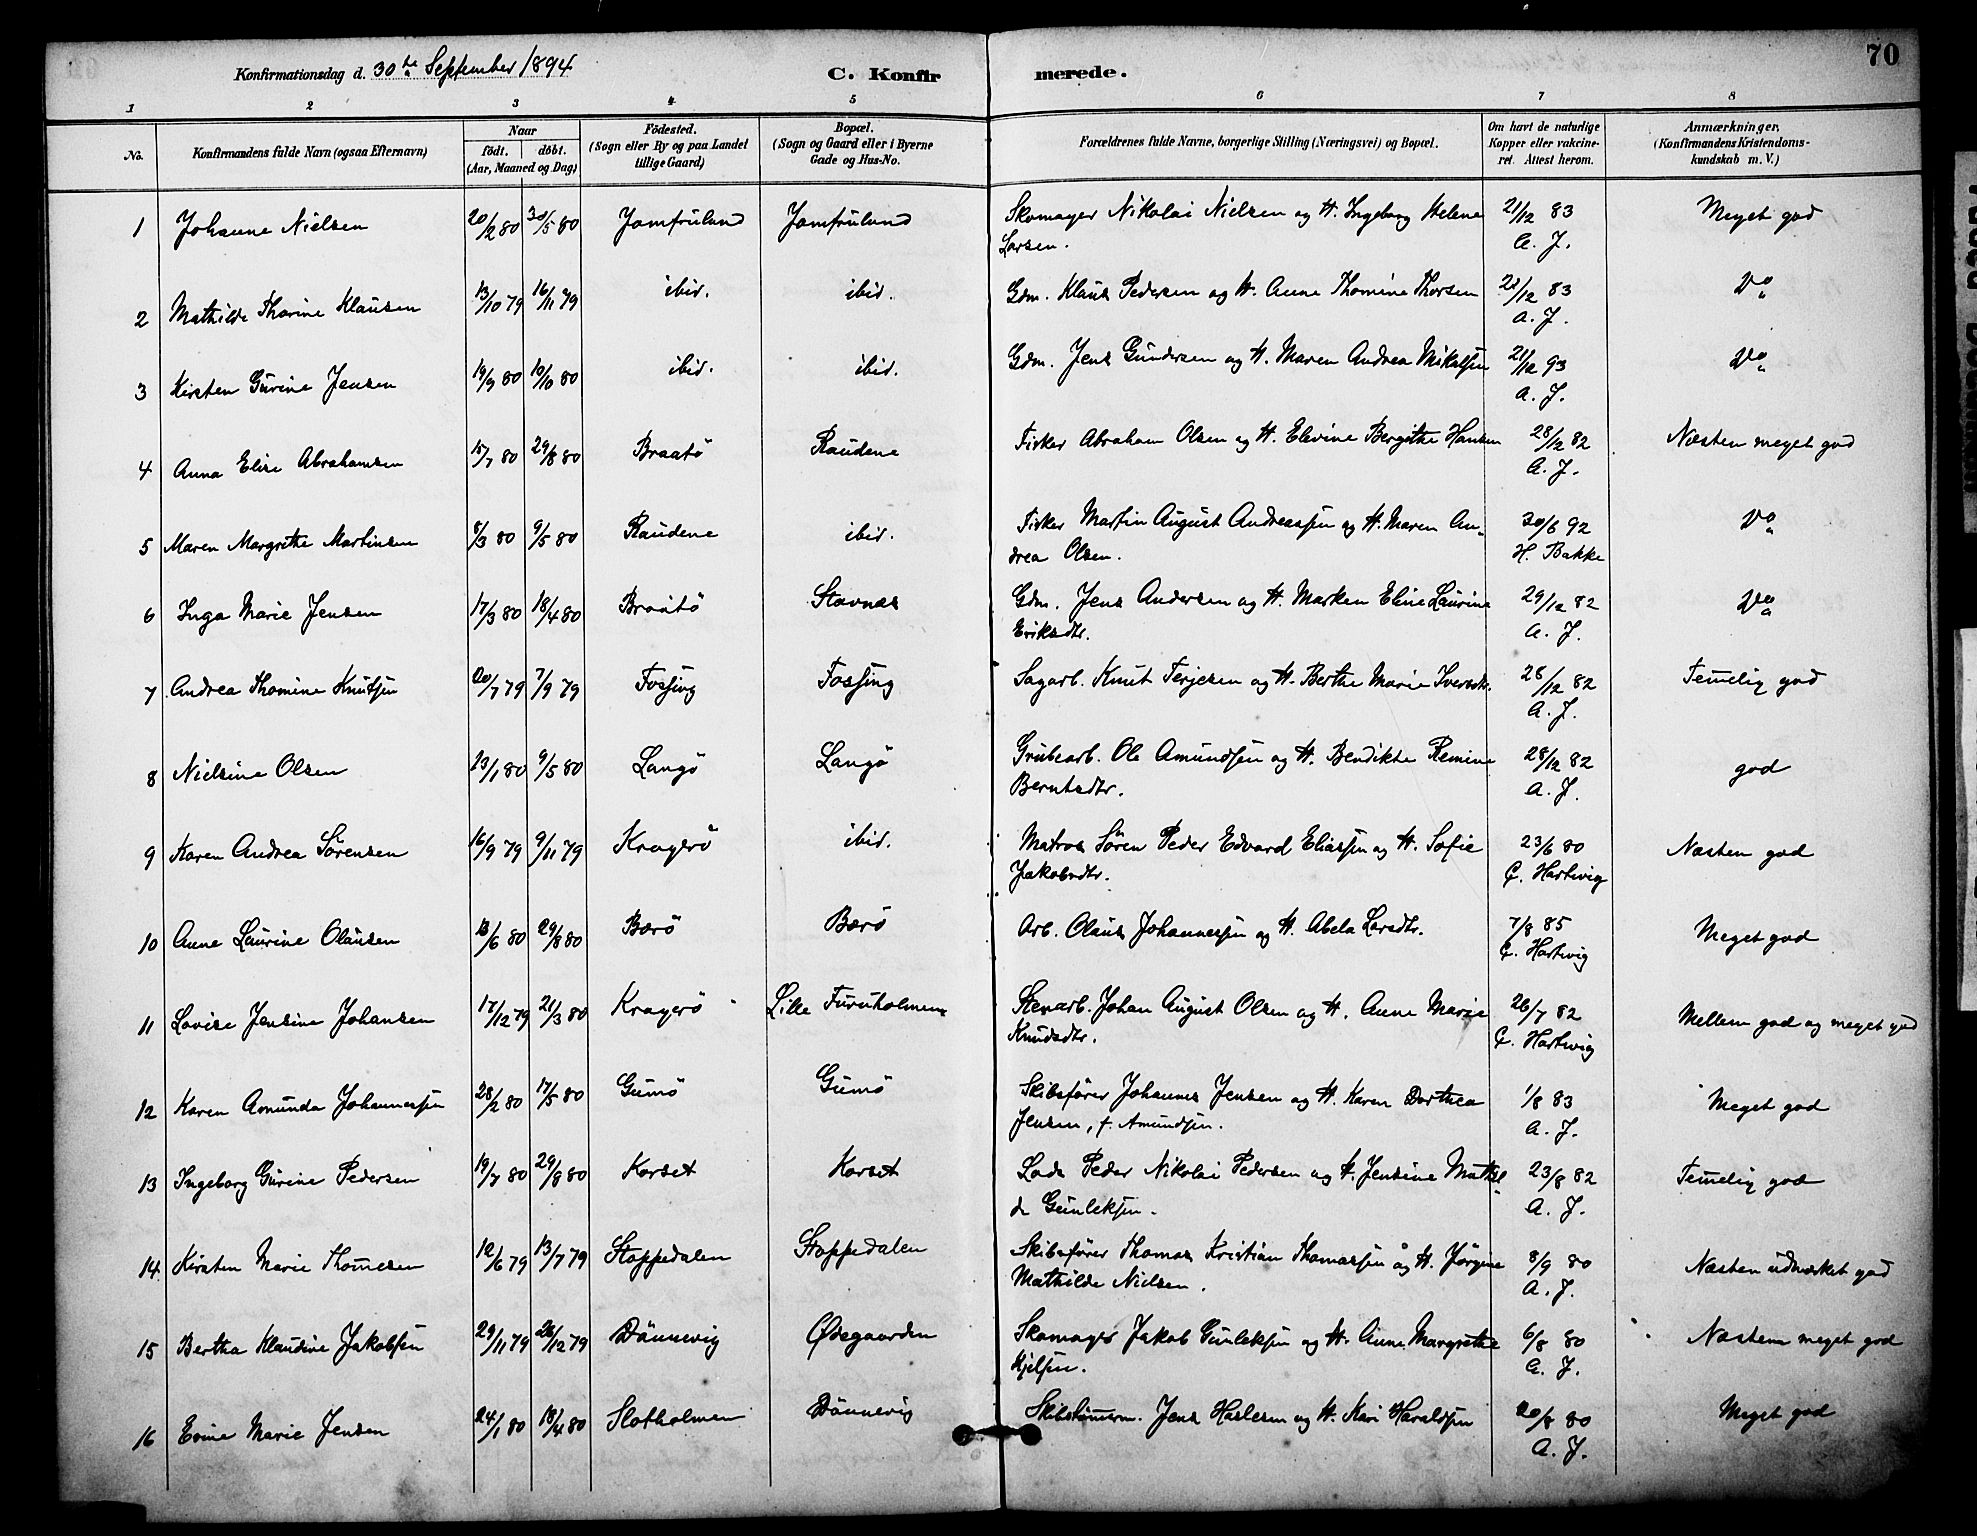 70
Konfirmationsdag d. 30te September 1894
C. Konfirmerede.
1 2 3 4 5 6 7 8
No.
Konfirmandens fulde Navn (ogsaa Efternavn)
Naar
födt. döbt.
(Aar, Maaned og Dag)
Födested.
(Sogn eller By og paa Landet tillige Gaard)
Bopæl.
(Sogn og Gaard eller i Byerne Gade og Hus-No.
Forældrenes fulde Navne, borgerlige Stilling (Næringsvei) og Bopæl.
Om havt de naturlige Kopper eller vakcineret. Attest herom.
Anmærkninger.
(Konfirmandens Kristendomskundskab m. V.)
1 Johanne Nielsen 20/2 80 30/5 80 Jomfruland Jomfruland Skomager Nikolai Nielsen og H. Ingeborg Helene 21/12 83 Meget god
Larsen. A. J.
2 Mathilde Thorine Klausen 13/10 79 16/11 79 ibid. ibid. Gdm. Klaus Pedersen og H. Anne Thomine Thorsen 21/12 83 Do
A. J.
3 Kirsten Gurine Jensen 19/9 80 10/10 80 ibid. ibid. Gdm. Jens Gundersen og H. Maren Andrea Mikalsen 21/12 93 Do
A. J.
4 Anna Elise Abrahamsen 15/7 80 29/8 80 Braatö Raudene Fisker Abraham Olsen og H. Elevine Bergithe Hansen 28/12 82 Næsten meget god
A. J.
5 Maren Margrethe Martinsen 8/3 80 9/5 80 Raudene ibid. Fisker Martin August Andreassen og H. Maren An- 30/6 92 Do
drea Olsen. H. Bakke
6 Inga Marie Jensen 17/3 80 18/4 80 Braatö Stavnes Gdm. Jens Andersen og H. Marken Eline Laurine 29/12 82 Do
Eriksdtr. A. J.
7 Andrea Thomine Knutsen 20/7 79 7/9 79 Fossing Fossing Sagarb. Knut Terjesen og H. Berthe Marie Iversdtr. 28/12 82 Temelig god
A. J.
8 Nielsine Olsen 13/1 80 9/5 80 Langö Langö Grubearb. Ole Amundsen og H. Bendikte Remine 28/12 82 god
Berntsdtr. A. J.
9 Karen Andrea Sørensen 16/9 79 9/11 79 Kragerö ibid. Matros Søren Peder Edvard Eliassen og H. Sofie 23/6 80 Næsten god
Jakobsdtr. C. Hartwig
10 Anne Laurine Olausen 13/6 80 29/8 80 Barö Barö Arb. Olaus Johannessen og H. Abela Larsdtr. 7/8 85 Meget god
C. Hartwig
11 Lovise Jensine Johansen 17/12 79 21/3 80 Kragerö Lille Furuholmen Stenarb. Johan August Olsen og H. Anne Marie 26/7 82 Mellem god og meget god
Knudsdtr. C. Hartwig
12 Karen Amunda Johannessen 28/2 80 17/5 80 Gumö Gumö Skibsfører Johannes Jensen og H. Karen Dorthea 1/8 83 Meget god
Jensen, f. Amundsen. A. J.
13 Ingeborg Gurine Pedersen 19/7 80 29/8 80 Korset Korset Lods Peder Nikolai Pedersen og H. Jensine Mathil- 23/8 82 Temelig god
de Gunleksen. A. J.
14 Kirsten Marie Thomesen 12/6 79 13/7 79 Stoppedalen Stoppedalen Skibsfører Thomas Kristian Thomassen og H. Jørgine 8/9 80 Næsten udmærket god
Mathilde Nielsen. A. J.
15 Bertha Klaudine Jakobsen 29/11 79 26/12 79 Dönnevig Ødegaarden Skomager Jakob Gunleksen og H. Anne Margrethe 6/8 80 Næsten meget god
Kjelsen. A. J.
16 Evine Marie Jensen 24/1 80 18/4 80 Slotholmen Dönnevig Skibstømerm. Jens Haslesen og H. Kari Haraldsen 20/8 80 Meget god
A. J.